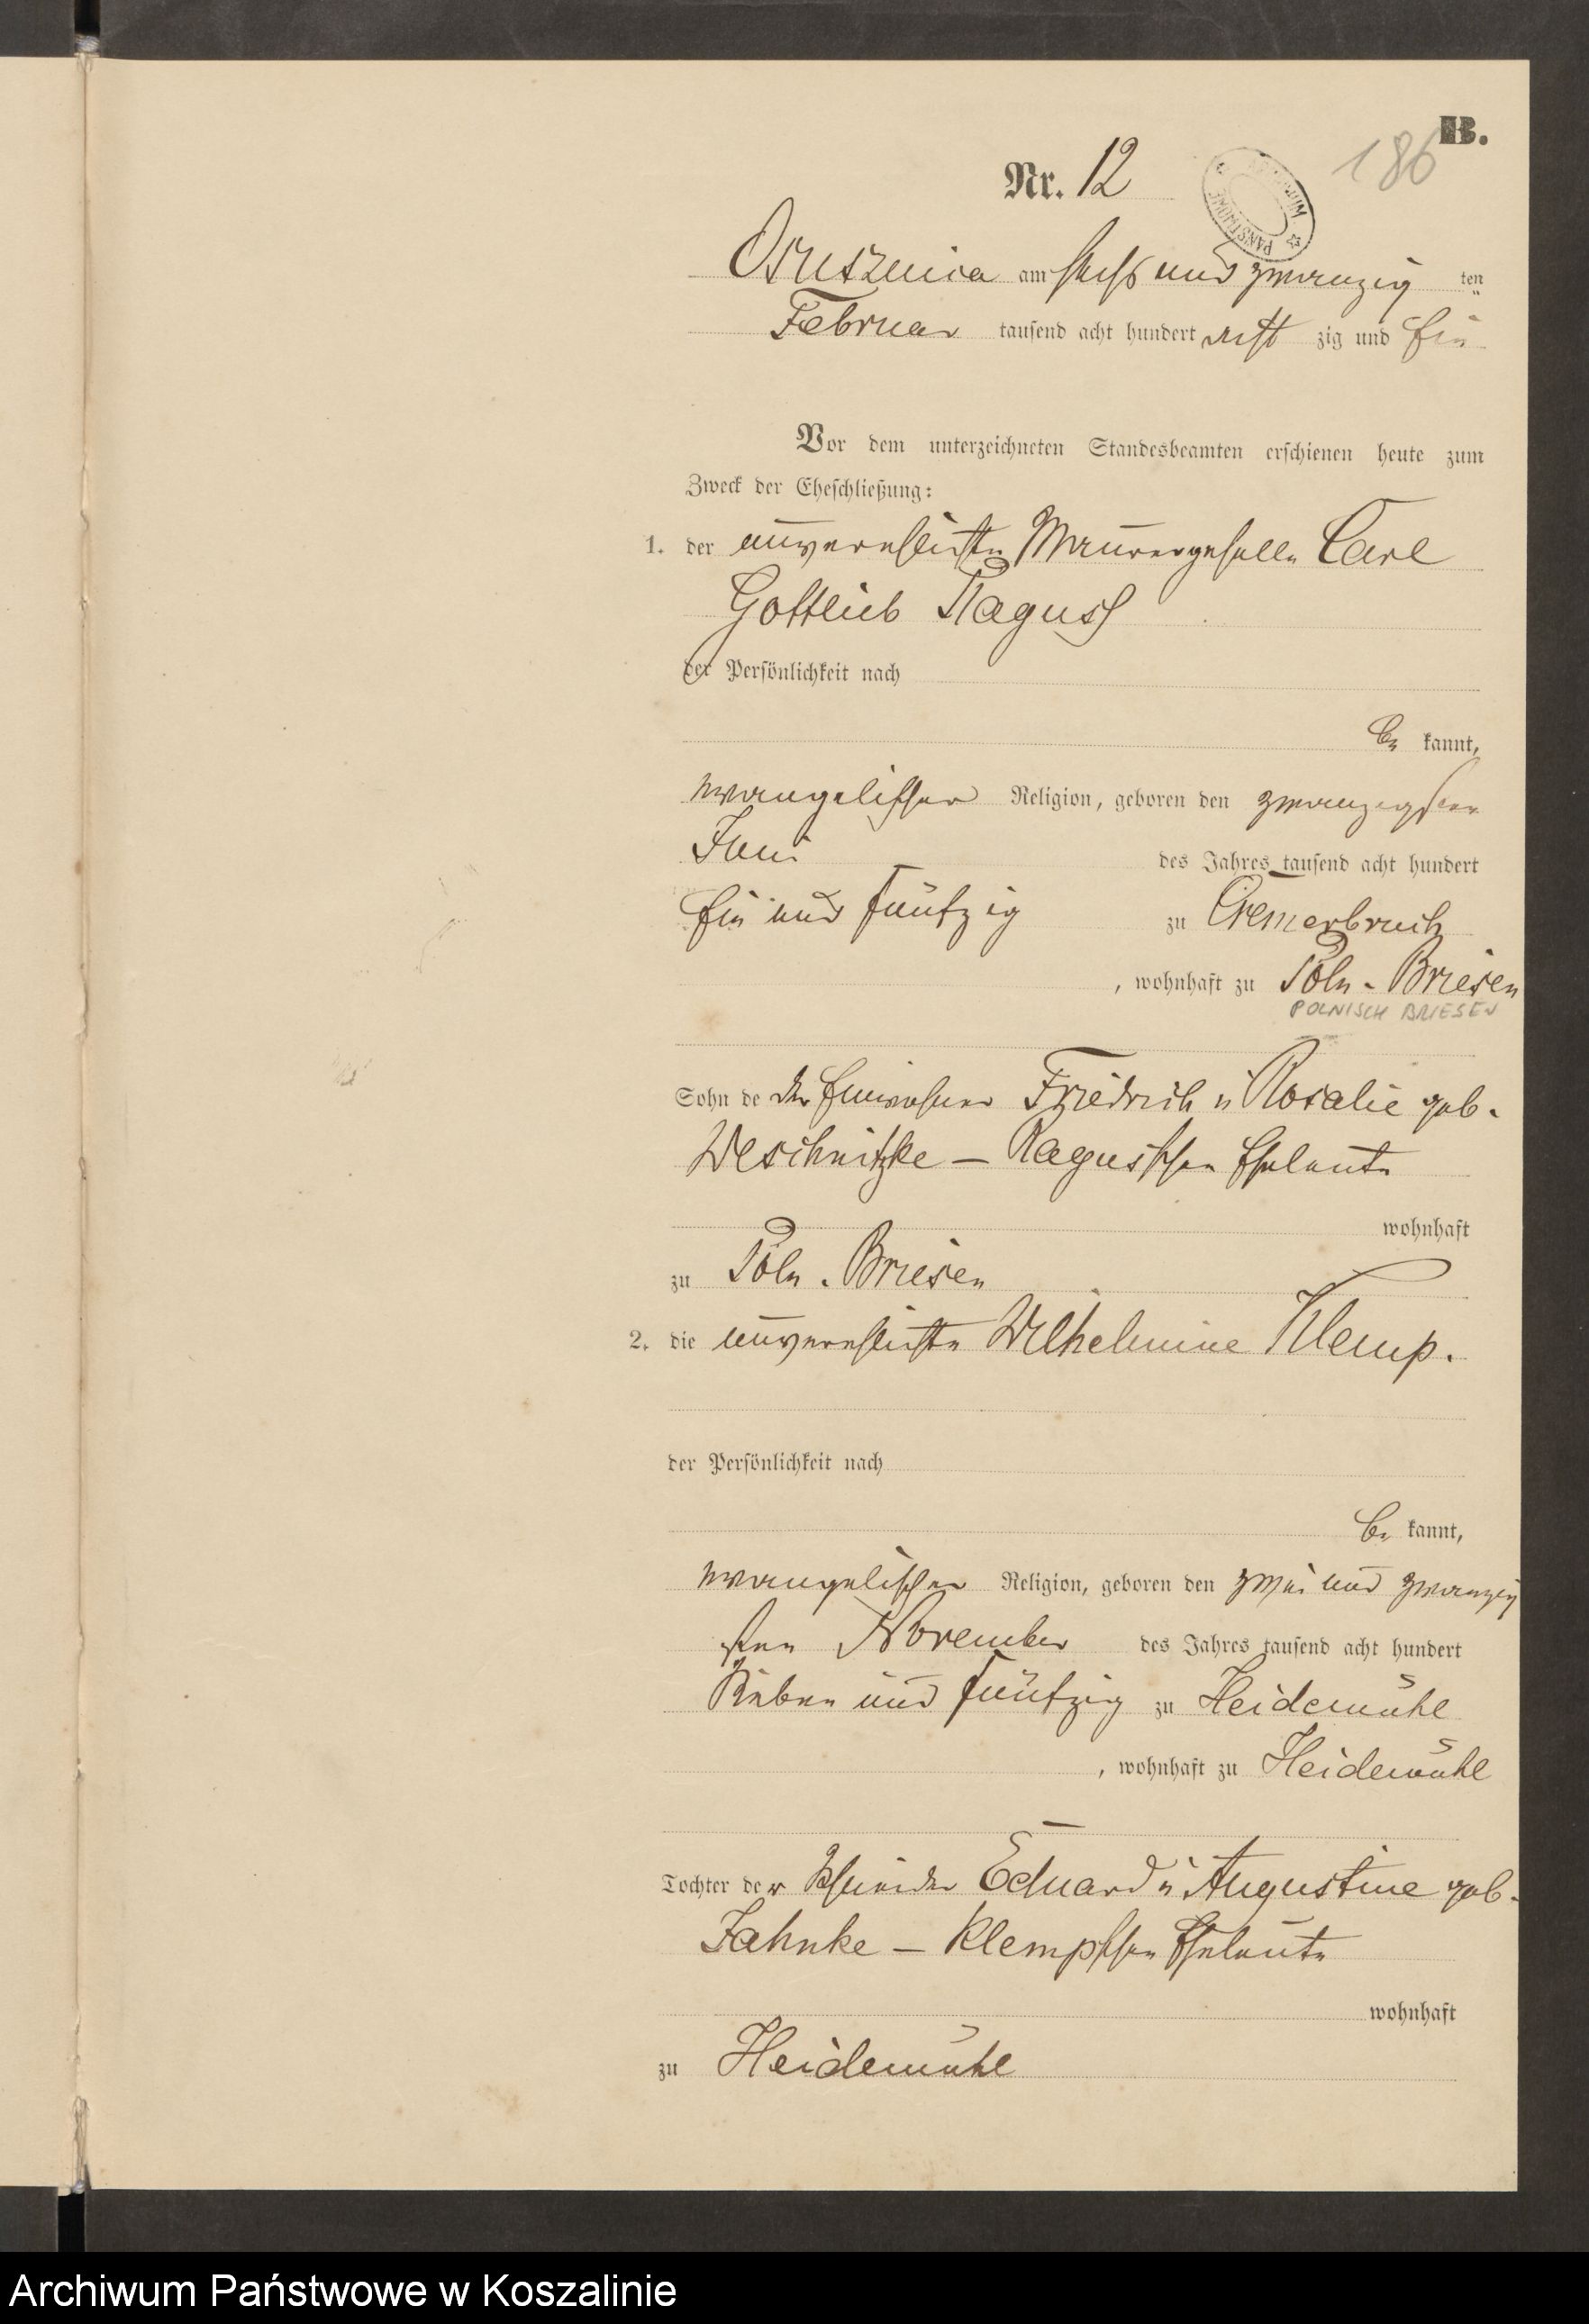 B.
186
Nr. 12
Ossusznica am sechs und zwanzig ten
Februar tausend acht hundert acht zig und ein
Vor dem unterzeichneten Standesbeamten erschienen heute zum
Zweck der Eheschließung:
1. der unverehlichte Maurergeselle Carl
Gottlieb Ragusch
der Persönlichkeit nach
be kannt,
evangelischer Religion, geboren den zwanzigsten
Juni des Jahres tausend acht hundert
ein und fünfzig zu Cremerbruch
, wohnhaft zu Poln. Briesen
POLNISCH BRIESEN
Sohn de der Einwohner Friedrich u Rosalie geb.
Weschnitzke – Raguschschen Eheleute
wohnhaft
zu Poln. Briesen
2. die unverehlichte Wilhelmine Klemp.
der Persönlichkeit nach
be kannt,
evangelischer Religion, geboren den zwei und zwanzig
sten November des Jahres tausend acht hundert
sieben und fünfzig zu Heidemühl
, wohnhaft zu Heidemühl
Tochter der Schneider Eduard u Augustine geb.
Jahnke – Klempschen Eheleute
wohnhaft
zu Heidemühl
Archiwum Państwowe w Koszalinie